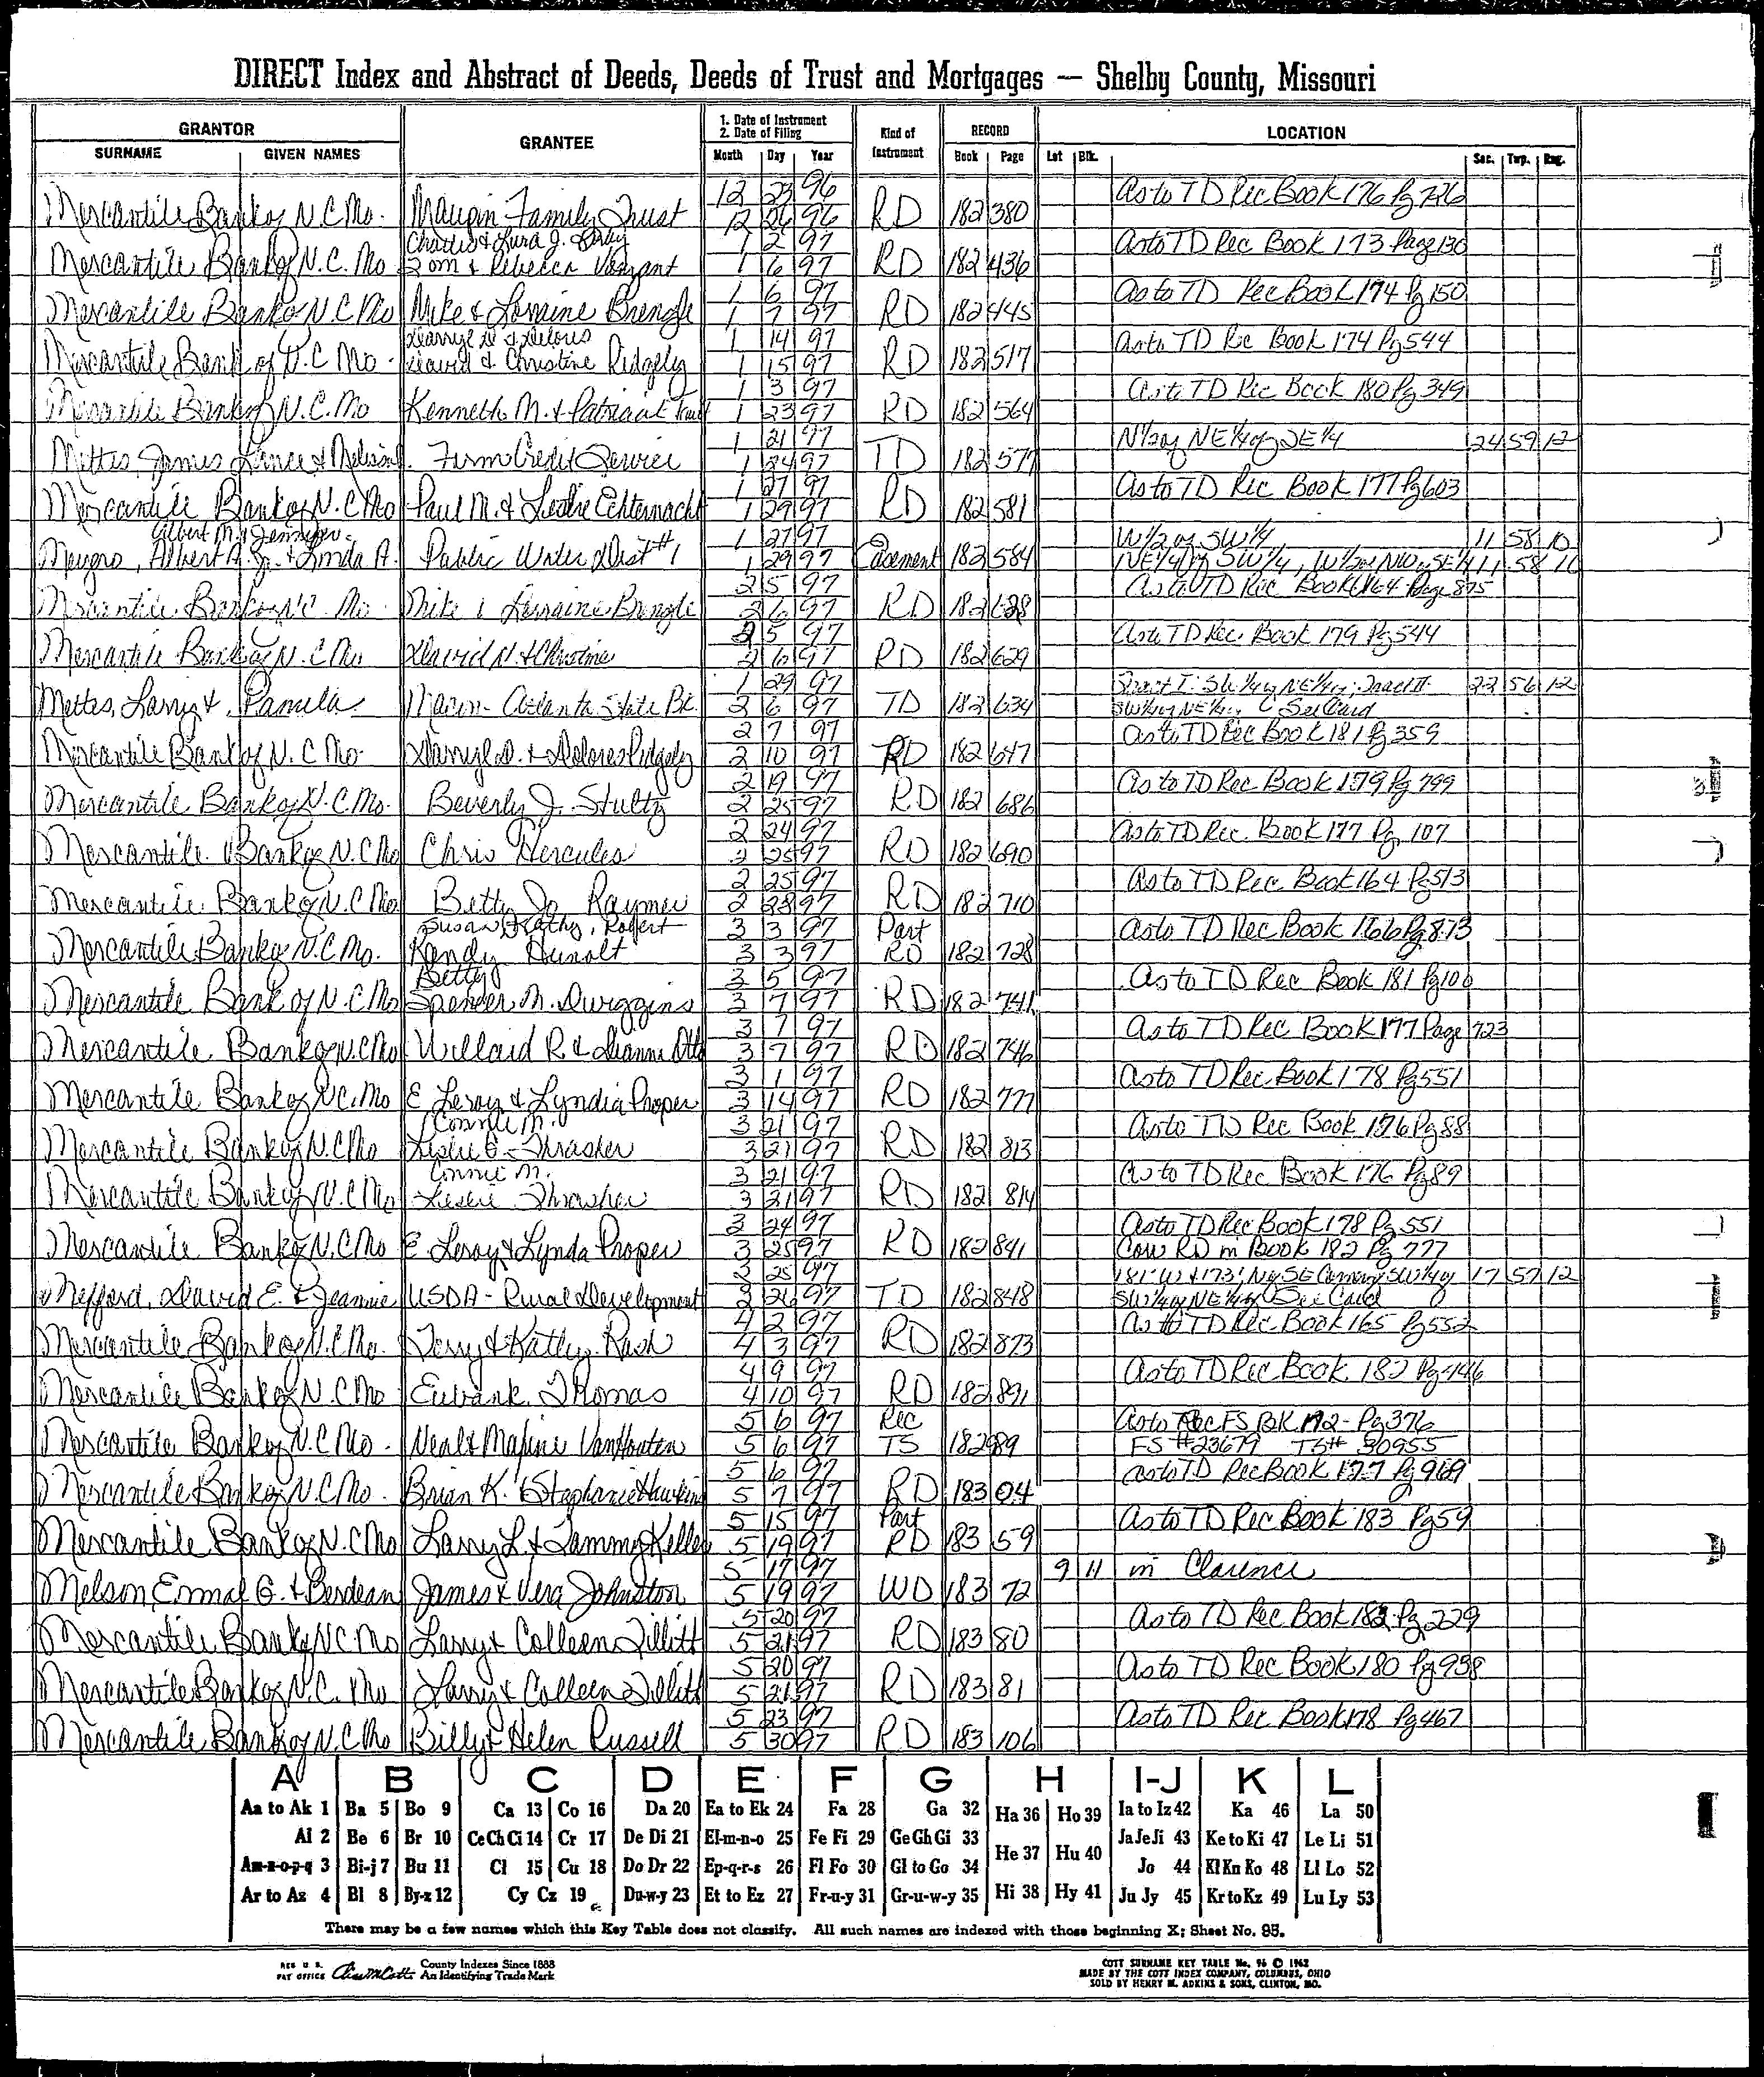 DIRECT Index and Abstract of Deeds, Deeds of Trust and Mortgages — Shelby County, Missouri
GRANTOR GRANTEE 1. Date of Instrument 2. Date of Filing Kind of Instrument RECORD LOCATION
SURNAME GIVEN NAMES Month Day Year Book Page Lot Blk. Sec. Twp. Rng.
12 23 96 As to TD Rec Book 176 Pg 726
Mercantile Bank of N.C. Mo. Maupin Family Trust 12 26 96 RD 182 380
Charles & Lura J. 1 2 97 As to TD Rec Book 173 Page 130
Mercantile Bank of N.C. Mo Tom & Rebecca Vanzant 1 6 97 RD 182 436
1 6 97 As to TD Rec Book 174 Pg 150
Mercantile Bank of N.C Mo Mike & Lorraine Brengle 1 7 97 RD 182 445
Darryl D & Delores 1 14 97 As to TD Rec Book 174 Pg 544
Mercantile Bank of N.C Mo. David & Christine Ridgely 1 15 97 RD 182 517
1 3 97 As to TD Rec Book 180 Pg 349
Mercantile Bank of N.C. Mo Kenneth M. & Patricia 1 23 97 RD 182 564
1 21 97 N 1/2 of NE 1/4 of SE 1/4 24 59 12
Mettes James Lance & Melissa Farm Credit Service 1 24 97 TD 182 577
1 27 97 As to TD Rec Book 177 Pg 603
Mercantile Bank of N.C Mo Paul M. & Leslie Echternacht 1 29 97 RD 182 581
Gilbert M. & Jennifer 1 27 97 W 1/2 of SW 1/4 11 58 10
Albert A. Jr. & Linda A. Public Water Dist #1 1 29 97 Easement 182 584 NE 1/4 of SW 1/4, W 1/2 of NW of SE 1/4 11 58 10
2 5 97 As to TD Rec Book 164 Page 875
Mercantile Bank of N.C. Mo. Mike & Lorraine Brengle 2 6 97 RD 182 628
2 5 97 As to TD Rec. Book 179 Pg 544
Mercantile Bank of N.C Mo David N. & Christine 2 6 97 RD 182 629
1 29 97 Tract I: SW 1/4 of NE 1/4; Tract II 22 56 12
Mettes, Larry & Pamela Macon-Atlanta State Bk. 2 6 97 TD 182 634 SW 1/4 of NE 1/4, See Card
2 7 97 As to TD Rec Book 181 Pg 359
Mercantile Bank of N.C Mo Darryl D. & Delores Ridgely 2 10 97 RD 182 647
2 19 97 As to TD Rec Book 179 Pg 799
Mercantile Bank of N.C. Mo. Beverly J. Stultz 2 25 97 RD 182 686
2 24 97 As to TD Rec. Book 177 Pg 107
Mercantile Bank of N.C Mo Chris Hercules 2 25 97 RD 182 690
2 25 97 As to TD Rec. Book 164 Pg 513
Mercantile Bank of N.C Mo Betty Jo Raymer 2 28 97 RD 182 710
Susan, Kathy, Robert 3 3 97 Part As to TD Rec Book 166 Pg 873
Mercantile Bank of N.C. Mo. Randy Hunolt 3 3 97 RD 182 728
Betty 3 5 97 As to TD Rec Book 181 Pg 100
Mercantile Bank of N.C Mo Spencer M. Dwiggins 3 7 97 RD 182 741
3 7 97 As to TD Rec Book 177 Page 723
Mercantile Bank of N.C Mo Willard R & Dianne Otto 3 7 97 RD 182 746
3 1 97 As to TD Rec. Book 178 Pg 551
Mercantile Bank of N.C. Mo E Leroy & Lyndia Proper 3 14 97 RD 182 777
Connie M. 3 21 97 As to TD Rec Book 176 Pg 88
Mercantile Bank of N.C Mo Leslie E. Thrasher 3 21 97 RD 182 813
Connie M. 3 21 97 As to TD Rec Book 176 Pg 89
Mercantile Bank of N.C Mo Leslie Thrasher 3 21 97 RD 182 814
3 24 97 As to TD Rec Book 178 Pg 551
Mercantile Bank of N.C Mo E Leroy & Lynda Proper 3 25 97 RD 182 841 Corr RD in Book 182 Pg 777
3 25 97 181' W & 173' N of SE Corner of SW 1/4 of 17 57 12
Mefford, David E. & Jeannie USDA - Rural Development 3 26 97 TD 182 848 SW 1/4 of NE 1/4 See Card
4 2 97 As to TD Rec Book 165 Pg 552
Mercantile Bank of N.C Mo. Terry & Kathy Rash 4 3 97 RD 182 873
4 9 97 As to TD Rec Book 182 Pg 446
Mercantile Bank of N.C Mo Eubank Thomas 4 10 97 RD 182 891
5 6 97 Rec As to Rec FS BK 172 - Pg 376
Mercantile Bank of N.C Mo. Neal & Maxine VanHouten 5 6 97 TS 182 989 FS #23679 TS# 30955
5 6 97 As to TD Rec Book 177 Pg 969
Mercantile Bank of N.C Mo. Brian K. & Stephanie Hawkins 5 7 97 RD 183 04
5 15 97 Part As to TD Rec Book 183 Pg 59
Mercantile Bank of N.C Mo Larry L. & Tammy Keller 5 19 97 RD 183 59
5 17 97 9 11 in Clarence
Melson, Ermal G. & Berdean James & Vera Johnston 5 19 97 WD 183 72
5 20 97 As to TD Rec Book 182 Pg 229
Mercantile Bank of N.C Mo Larry & Colleen Tillitt 5 21 97 RD 183 80
5 20 97 As to TD Rec Book 180 Pg 938
Mercantile Bank of N.C. Mo Larry & Colleen Tillitt 5 21 97 RD 183 81
5 23 97 As to TD Rec Book 178 Pg 467
Mercantile Bank of N.C Mo Billy & Helen Russell 5 30 97 RD 183 106
A B C D E F G H I-J K L
Aa to Ak 1 Ba 5 Bo 9 Ca 13 Co 16 Da 20 Ea to Ek 24 Fa 28 Ga 32 Ha 36 Ho 39 Ia to Iz 42 Ka 46 La 50
Al 2 Be 6 Br 10 Ce Ch Ci 14 Cr 17 De Di 21 El-m-n-o 25 Fe Fi 29 Ge Gh Gi 33 He 37 Hu 40 Ja Je Ji 43 Ke to Ki 47 Le Li 51
Am-n-o-p-q 3 Bi-j 7 Bu 11 Cl 15 Cu 18 Do Dr 22 Ep-q-r-s 26 Fl Fo 30 Gl to Go 34 Jo 44 Kl Kn Ko 48 Ll Lo 52
Ar to Az 4 Bl 8 By-z 12 Cy Cz 19 Du-w-y 23 Et to Ez 27 Fr-u-y 31 Gr-u-w-y 35 Hi 38 Hy 41 Ju Jy 45 Kr to Kz 49 Lu Ly 53
There may be a few names which this Key Table does not classify. All such names are indexed with those beginning X; Sheet No. 95.
REG U.S. PAT OFFICE County Indexes Since 1888 An Identifying Trade Mark
COTT SURNAME KEY TABLE No. 96 © 1962
MADE BY THE COTT INDEX COMPANY, COLUMBUS, OHIO
SOLD BY HENRY M. ADKINS & SONS, CLINTON, MO.